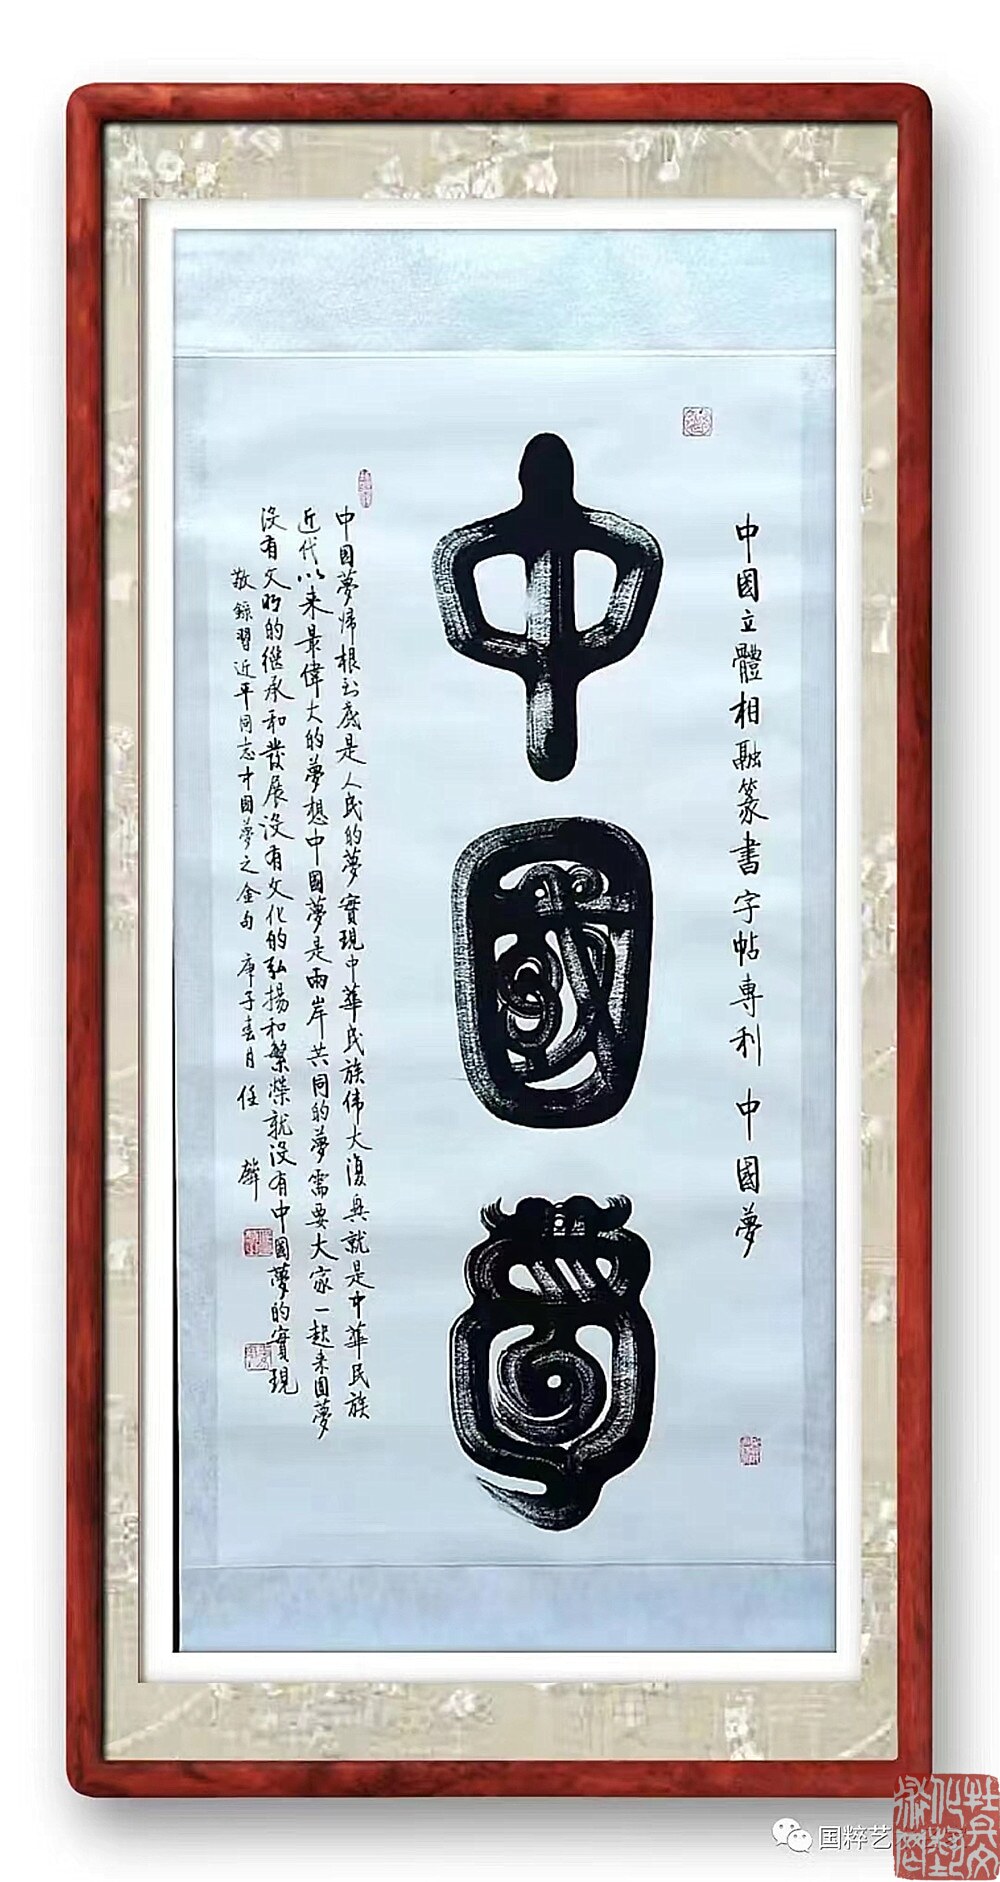 中國立體相融篆書字帖專利 中國夢
中國夢
中国夢归根到底是人民的夢實現中華民族伟大復興就是中華民族
近代以来最偉大的夢想中國夢是兩岸共同的夢需要大家一起来圆夢
没有文明的继承和發展没有文化的弘揚和繁榮就没有中國夢的實現
敬錄習近平同志中國夢之金句 庚子春月 任
国粹艺